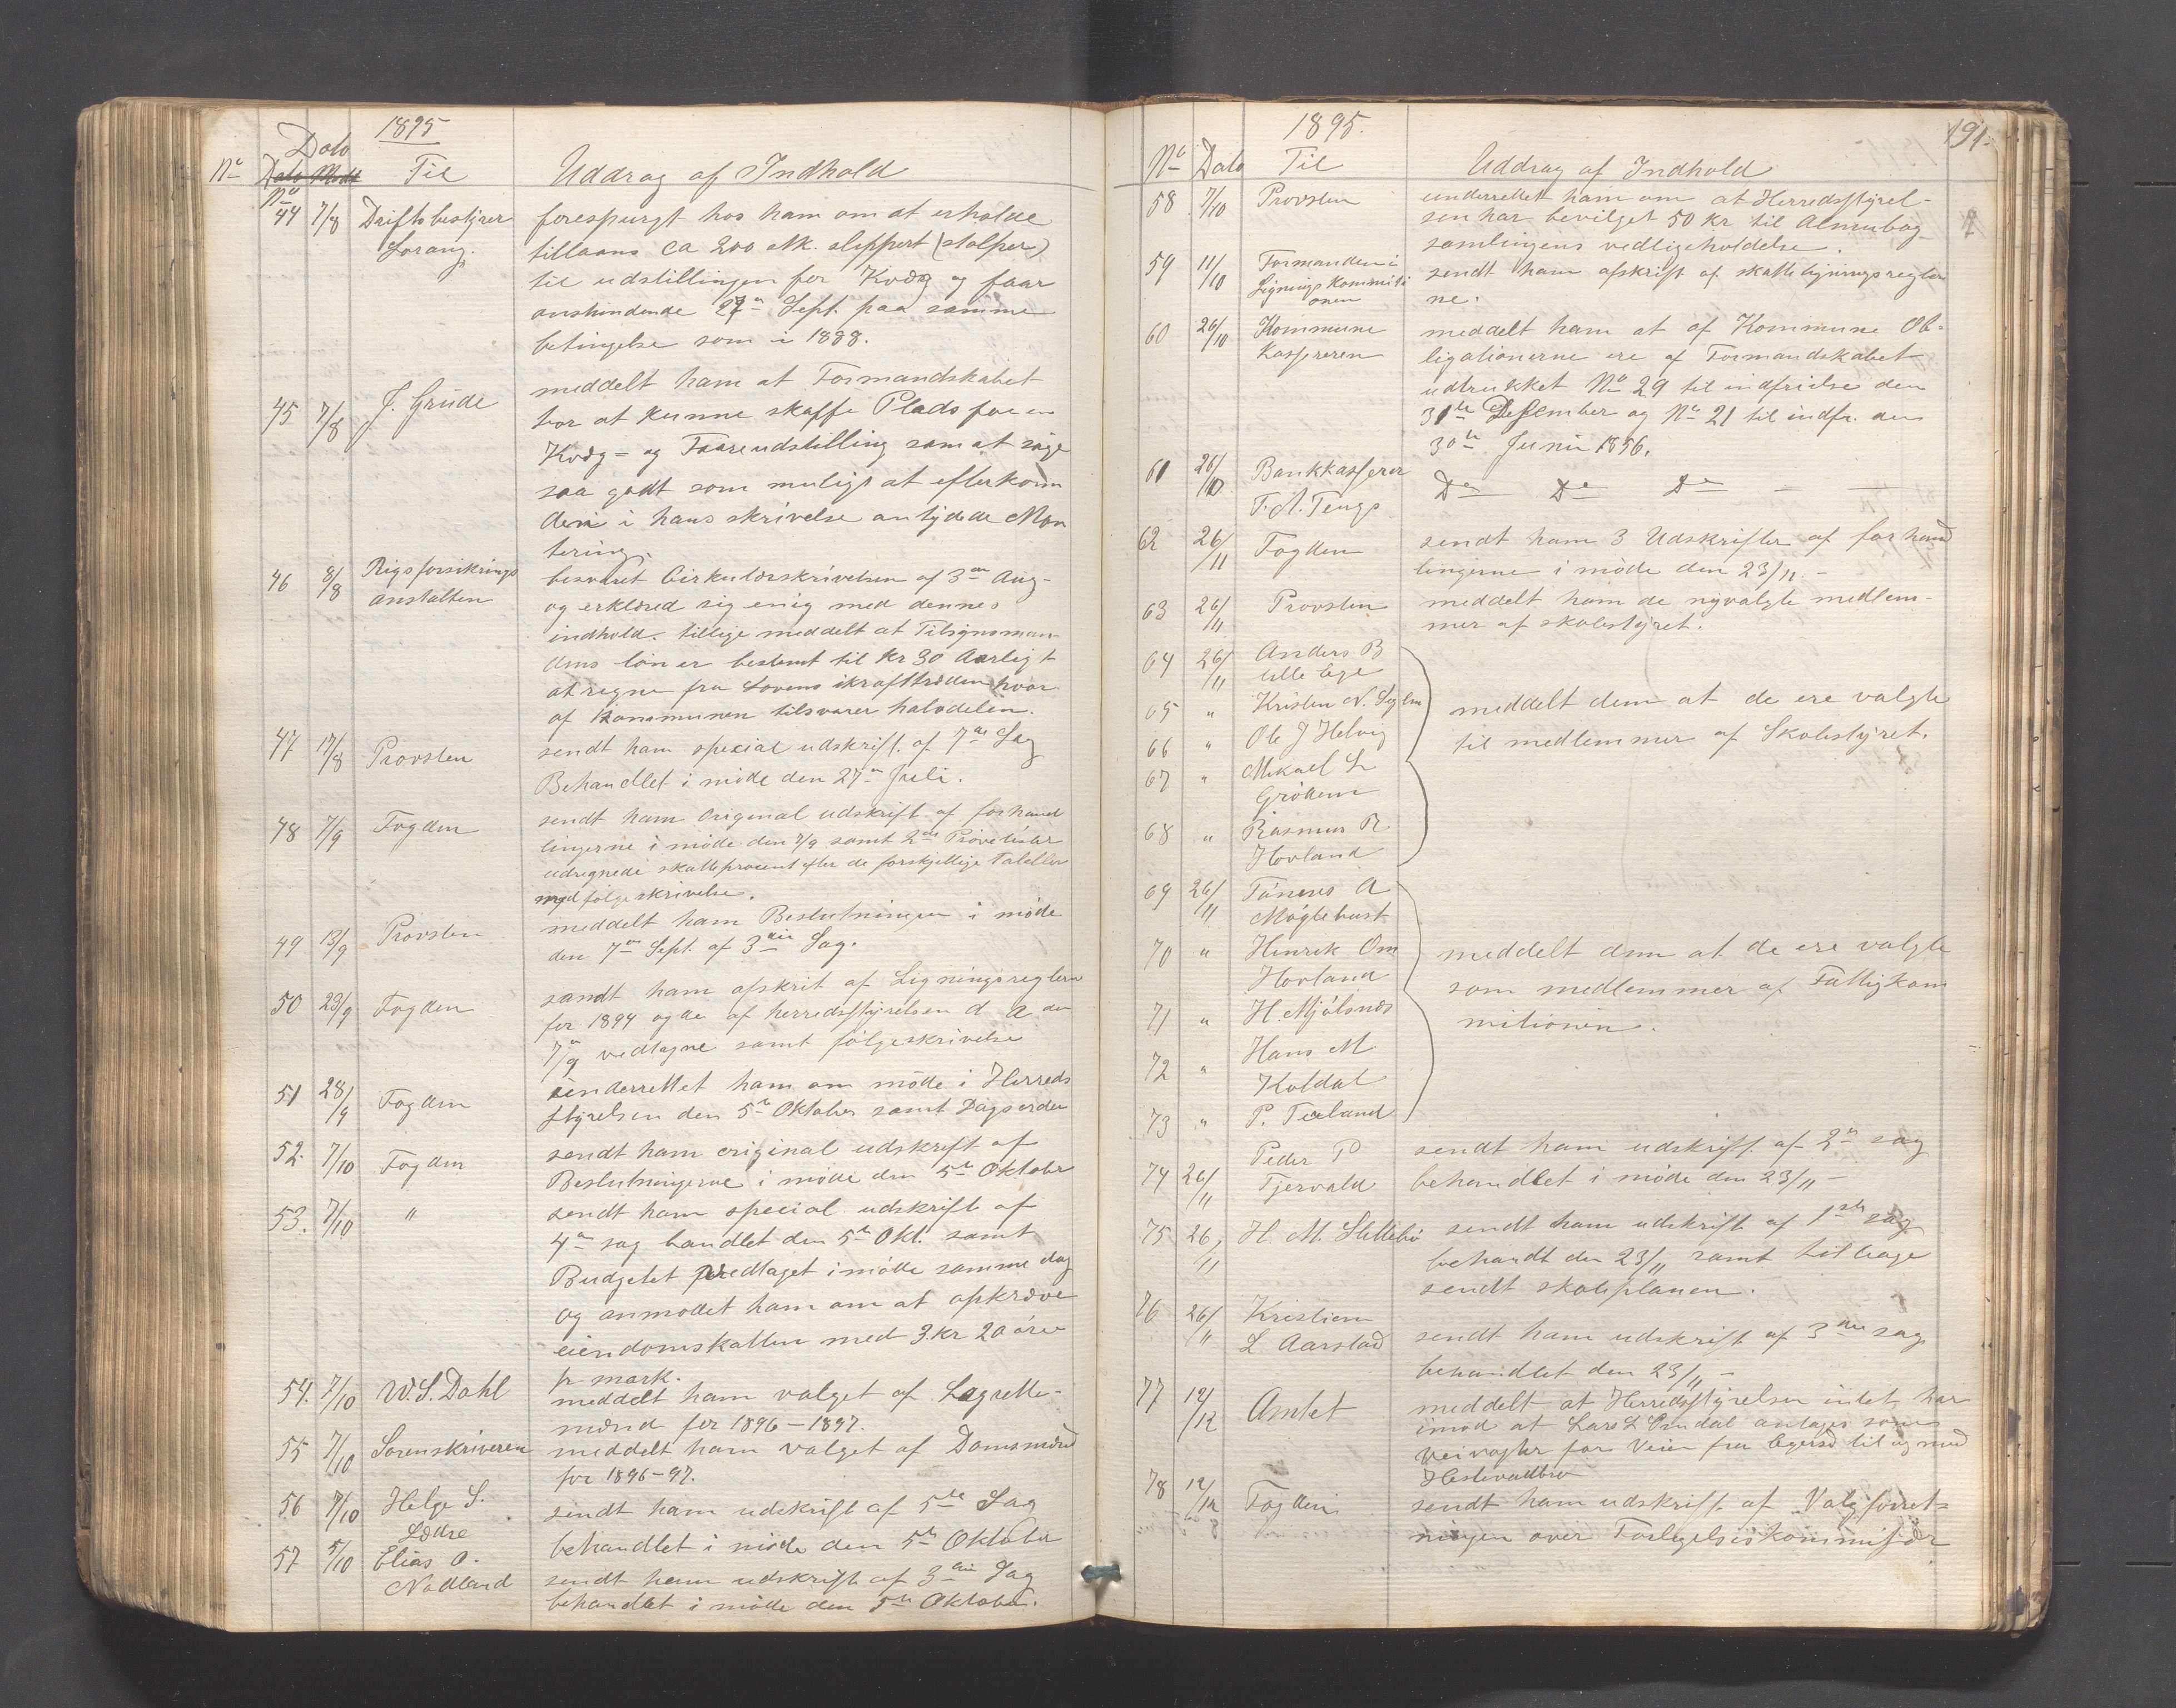 1895
Dato
No Til Uddrag af Indhold
No
44 7/8 Driftsbestyrer forespurgt hos ham om at erholde
tillaans ca 200 stk. slippert (stolper)
til udstillingen for Kvæg og faar
anstundende 27de Sept. paa samme
betingelse som i 1888.
45 7/8 J. Grude meddelt ham at Formandskabet
tror at kunne skaffe Plads for en
Kvæg- og Faareudstilling samt at søge
saa godt som muligt at efterkom
den i hans skrivelse antydede Mon
tering.
46 8/8 Rigsforsikrings besvaret Cirkulærskrivelsen af 3die Aug-
anstalten og erklæred sig enig med dennes
indhold. tillige meddelt at Tilsynsman-
dens løn er bestemt til Kr 30 Aarligt
at regne fra Lovens ikrafttræden hvor
af Kommunen tilsvarer halvdelen.
47 17/8 Provsten sendt ham special udskrift af 7de Sag
Behandlet i møde den 27de Juli.
48 7/9 Fogden sendt ham Original udskrift af forhand
lingerne i møde den 7/9 samt 2de Prøvelister
udregnede skatteprocent efter de forskjellige Tabeller
med følgeskrivelse.
49 13/9 Provsten meddelt ham Beslutningen i møde
den 7de Sept. af 3die Sag.
50 23/9 Fogden sendt ham afskrit af Ligningsreglerne
for 1894 og de af herredsstyrelsen d A den
7/9 vedtagne samt følgeskrivelse
51 28/9 Fogden underrettet ham om møde i Herreds
styrelsen den 5te Oktober samt Dagsorden
52. 7/10 Fogden sendt ham original udskrift af
Beslutningerne i møde den 5te Oktober
53. 7/10 " sendt ham special udskrift af
4de sag handlet den 5te Okt. samt
Budgetet vedtaget i møde samme dag
og anmodet ham om at opkræve
eiendomskatten med 3.kr 20 øre
pr mark.
54. 7/10 W. S. Dahl meddelt ham valget af Lagrette-
mænd for 1896-1897.
55 7/10 Sorenskriveren meddelt ham valget af Domsmænd
for 1896-97.
56 7/10 Helge S. sendt ham udskrift af 5te Sag
Lædre behandlet i møde den 5te Oktober
57 5/10 Elias O. sendt ham udskrift af 3die Sag
Nodland behandlet i møde den 5te Oktober.
191.
1895.
No Dato Til Uddrag af Indhold
58 7/10 Provsten underrettet ham om at Herredsstyrel-
sen har bevilget 50 kr til Almubog-
samlingens vedligeholdelse.
59 11/10 Formanden i sendt ham afskrift af skatteligningsregler
Lignings Kommisi ne.
onen
60 26/10 Kommune meddelt ham at af Kommune Ob-
Kassereren ligationerne ere af Formandskabet
udtrukket No 29 til indfrielse den
31te December og No 21 til indfr. den
30te Juni 1896.
61 26/10 Bankkasserer Do Do Do - -
T. A. Tengs
62 26/11 Fogden sendt ham 3 Udskrifter af forhand
lingerne i møde den 23/11 -
63 26/11 Provsten meddelt ham de nyvalgte medlem-
mer af skolestyret.
64 26/11 Anders B
Lille Ege
65 " Kristen N. meddelt dem at de ere valgte
66 " Ole J Helvig til medlemmer af Skolestyret.
67 " Mikael L
Grødem
68 " Rasmus R
Hovland
69 26/11 Tønnes A
Møglebust
70 " Henrik Om meddelt dem at de ere valgte
Hovland som medlemmer af Fattigkom
71 " H. Mjølsnes mitionen.
72 " Hans M
Koldal
73 " P. Tueland
74 26/11 Peder P sendt ham udskrift af 2de sag
Tjervald behandlet i møde den 23/11 -
75 26/11 H. M. Slettebø sendt ham udskrift af 1ste sag
behandt den 23/11 samt tilbage
sendt skoleplanen.
76 26/11 Kristian
L Aarstad sendt ham udskrift af 3die sag
behandlet den 23/11 -
77 12/12 Amtet meddelt at Herredsstyrelsen intet har
imod at Lars L Omdal antages som
Veivogter for Veien fra Egersd til og med
Hestevadbro
78 12/12 Fogden sendt ham udskrift af Valgforret-
ningen over Forligelseskommisær